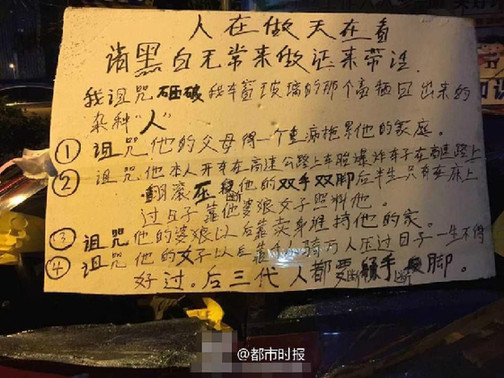 人在做天在看
请黑白无常来做证来带法
我诅咒砸破我车窗玻璃的那个畜牲日出来的
杂种"人"
① 诅咒他的父母得一个重病拖累他的家庭。
② 诅咒他本人开车在高速公路上车胎爆炸车子在高速路上
翻滚压断他的双手双脚后半生只有在床上
过日子靠他婆娘女子照料他。
③ 诅咒他的婆娘以后靠卖身维持他的家。
④ 诅咒他的女子以后靠万人骑万人压过日子一生不得
好过。后三代人都要断手断脚。
@都市时报